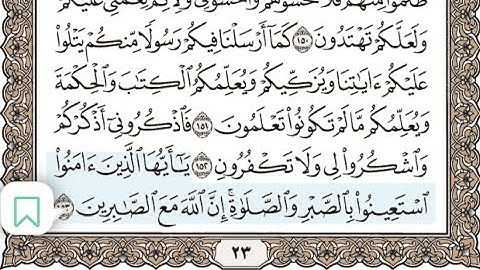 ظَلَمُوا۟ مِنْهُمْ فَلَا تَخْشَوْهُمْ وَٱخْشَوْنِى وَلِأُتِمَّ نِعْمَتِى عَلَيْكُمْ
وَلَعَلَّكُمْ تَهْتَدُونَ ١٥٠ كَمَآ أَرْسَلْنَا فِيكُمْ رَسُولًا مِّنكُمْ يَتْلُوا۟
عَلَيْكُمْ ءَايَٰتِنَا وَيُزَكِّيكُمْ وَيُعَلِّمُكُمُ ٱلْكِتَٰبَ وَٱلْحِكْمَةَ
وَيُعَلِّمُكُم مَّا لَمْ تَكُونُوا۟ تَعْلَمُونَ ١٥١ فَٱذْكُرُونِىٓ أَذْكُرْكُمْ
وَٱشْكُرُوا۟ لِى وَلَا تَكْفُرُونِ ١٥٢ يَٰٓأَيُّهَا ٱلَّذِينَ ءَامَنُوا۟
ٱسْتَعِينُوا۟ بِٱلصَّبْرِ وَٱلصَّلَوٰةِ ۚ إِنَّ ٱللَّهَ مَعَ ٱلصَّٰبِرِينَ ١٥٣
٢٣